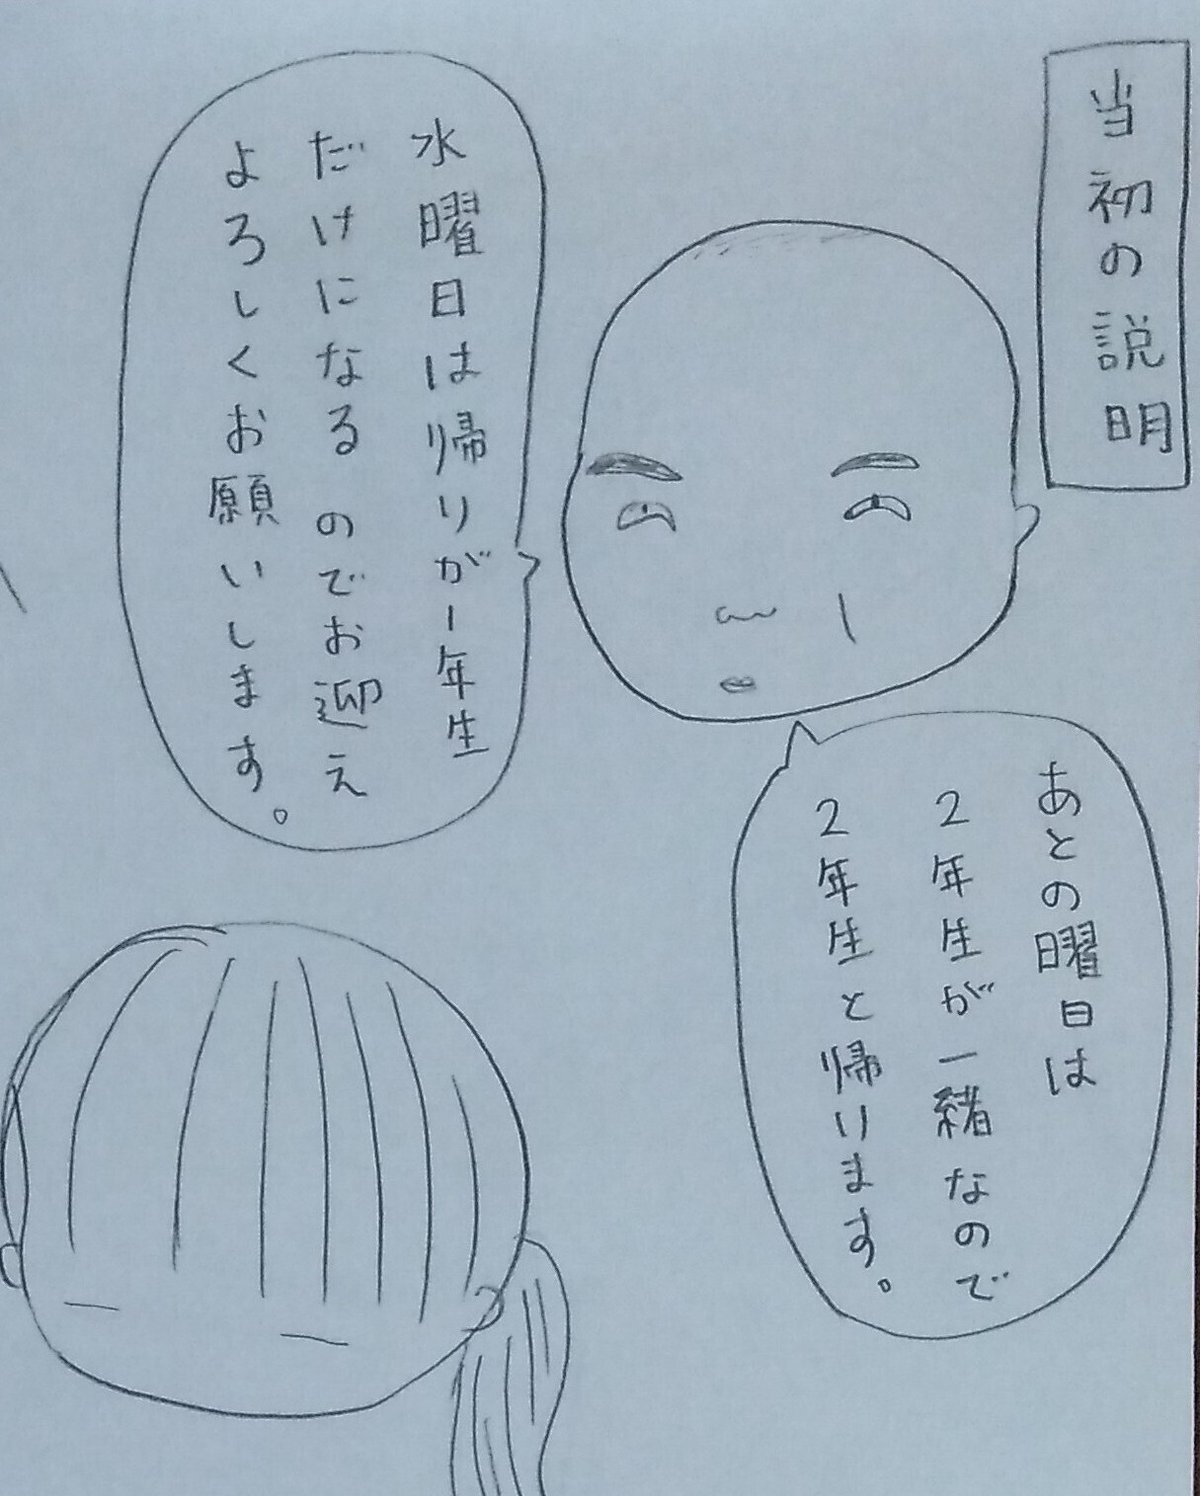 当初の説明
水曜日は帰りが1年生
だけになるのでお迎え
よろしくお願いします。
あとの曜日は
2年生が一緒なので
2年生と帰ります。